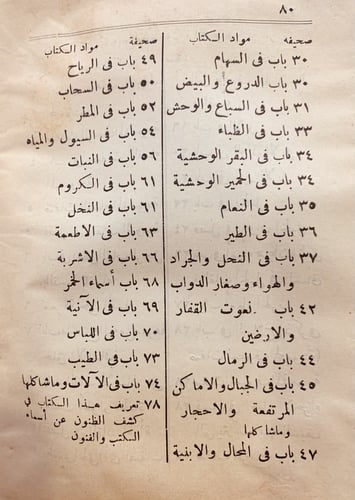 ٨٠
صحيفه مواد الكتاب
٣٠ باب فى السهام
٣٠ باب الدروع والبيض
٣١ باب فى السباع والوحش
٣٣ باب فى الظباء
٣٤ باب فى البقر الوحشية
٣٤ باب فى الحمير الوحشية
٣٥ باب فى النعام
٣٦ باب فى الطير
٣٧ باب فى النحل والجراد
والهواء وصغار الدواب
٤٢ باب نعوت القفار
والارضين
٤٤ باب فى الرمال
٤٥ باب فى الجبال والاماكن
المرتفعة والاحجار
وماشاكلها
٤٧ باب فى المحال والابنية
صحيفة مواد الكتاب
٤٩ باب فى الرياح
٥٠ باب فى السحاب
٥٢ باب فى المطر
٥٤ باب فى السيول والمياه
٥٦ باب فى النبات
٦١ باب فى الكروم
٦١ باب فى النخل
٦٣ باب فى الاطعمة
٦٦ باب فى الاشربة
٦٨ باب أسماء الخمر
٦٩ باب فى الآنية
٧٠ باب فى اللباس
٧٣ باب فى الطيب
٧٤ باب فى الآلات وماشاكلها
٧٨ تعريف هذا الكتاب فى
كشف الظنون عن أسماء
الكتب والفنون